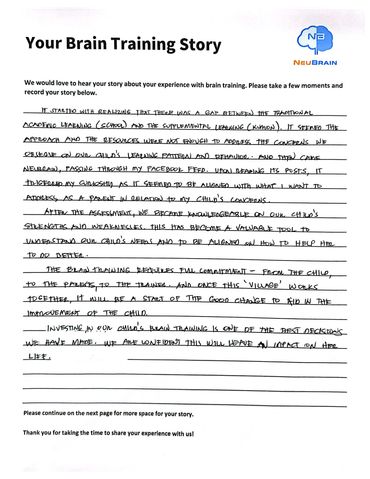 Your Brain Training Story
NB
NEUBRAIN
We would love to hear your story about your experience with brain training. Please take a few moments and
record your story below.
IT STARTED WITH REALIZING THAT THERE WAS A GAP BETWEEN THE TRADITIONAL
ACADEMIC LEARNING (SCHOOL) AND THE SUPPLEMENTAL LEARNING (KUMON). IT SEEMED THE
APPROACH AND THE RESOURCES WERE NOT ENOUGH TO ADDRESS THE CONCERNS WE
OBSERVE ON OUR CHILD'S LEARNING PATTERN AND BEHAVIOR. AND THEN CAME
NEUBRAIN, PASSING THROUGH MY FACEBOOK FEED. UPON READING ITS POSTS, IT
TRIGGERED MY CURIOSITY, AS IT SEEMED TO BE ALIGNED WITH WHAT I WANT TO
ADDRESS AS A PARENT IN RELATION TO MY CHILD'S CONCERNS.
AFTER THE ASSESSMENT, WE BECAME KNOWLEDGEABLE ON OUR CHILD'S
STRENGTHS AND WEAKNESSES. THIS HAS BECOME A VALUABLE TOOL TO
UNDERSTAND OUR CHILD'S NEEDS AND TO BE ALIGNED ON HOW TO HELP HER
TO DO BETTER.
THE BRAIN TRAINING REQUIRES FULL COMMITMENT - FROM THE CHILD,
TO THE PARENTS, TO THE TRAINER. AND ONCE THIS 'VILLAGE' WORKS
TOGETHER, IT WILL BE A START OF THE GOOD CHANGE TO AID IN THE
IMPROVEMENT OF THE CHILD.
INVESTING IN OUR CHILD'S BRAIN TRAINING IS ONE OF THE BEST DECISIONS
WE HAVE MADE. WE ARE CONFIDENT THIS WILL LEAVE AN IMPACT ON HER
LIFE.
Please continue on the next page for more space for your story.
Thank you for taking the time to share your experience with us!